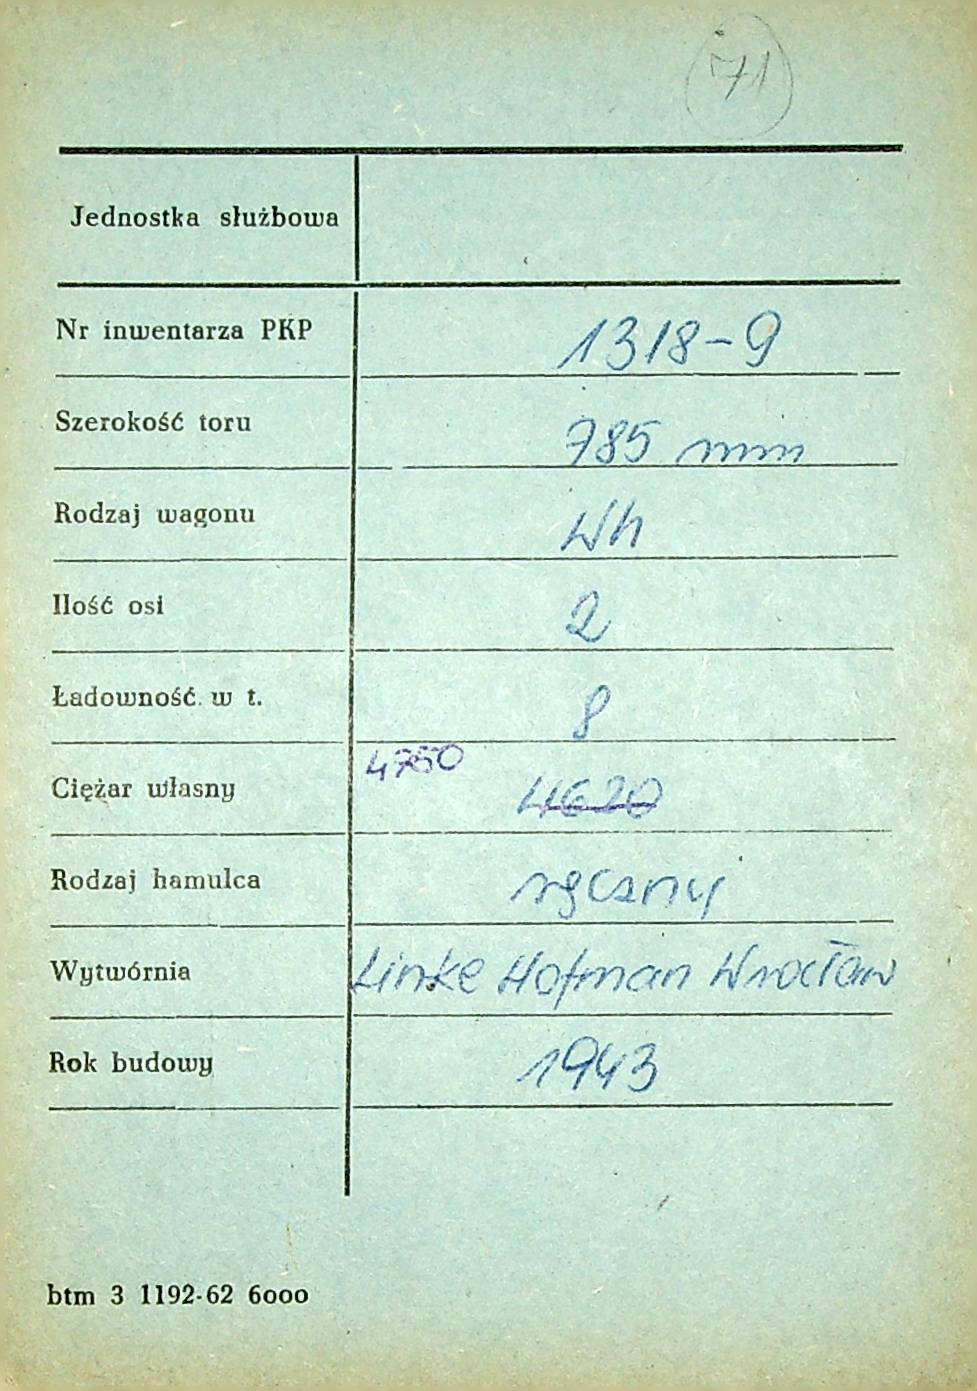 71
Jednostka służbowa
Nr inwentarza PKP 1318-9
Szerokość toru 785 mm
Rodzaj wagonu Wh
Ilość osi 2
Ładowność w t. 8
Ciężar własny 4750 4620
Rodzaj hamulca ręczny
Wytwórnia Linke Hofman Wrocław
Rok budowy 1943
btm 3 1192-62 6000